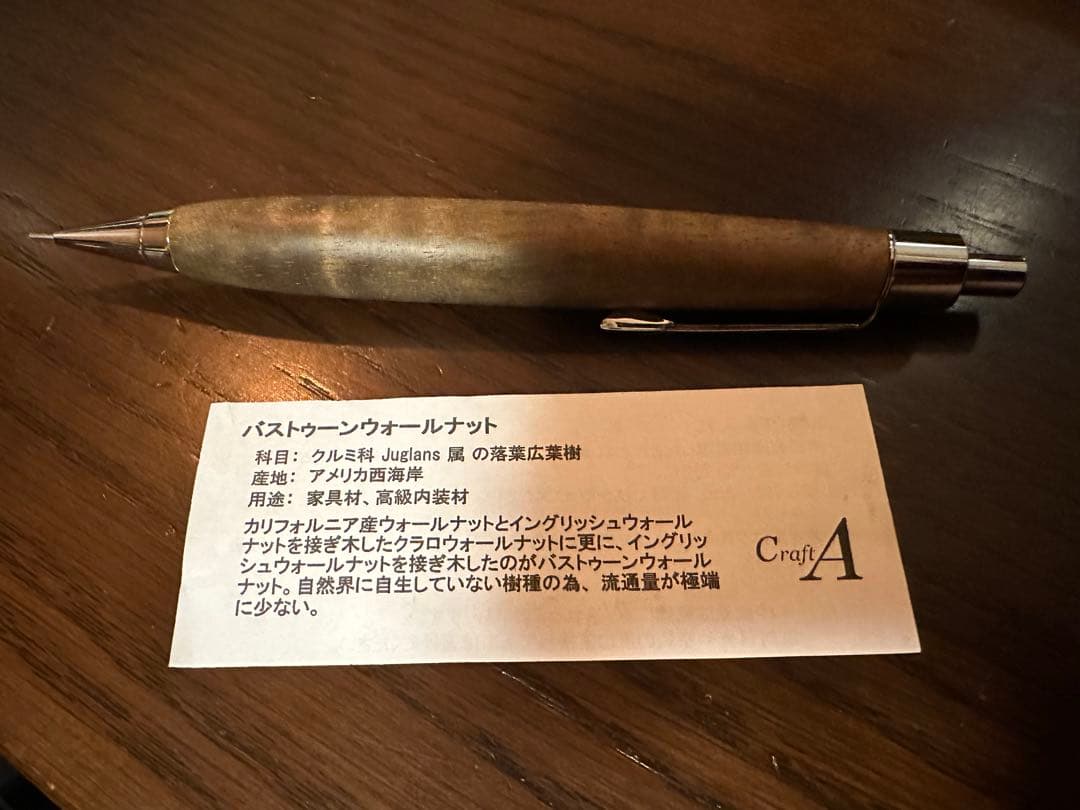 バストゥーンウォールナット
科目： クルミ科 Juglans 属 の落葉広葉樹
産地： アメリカ西海岸
用途： 家具材、高級内装材
カリフォルニア産ウォールナットとイングリッシュウォール
ナットを接ぎ木したクラロウォールナットに更に、イングリッ
シュウォールナットを接ぎ木したのがバストゥーンウォール
ナット。自然界に自生していない樹種の為、流通量が極端
に少ない。
Craft A